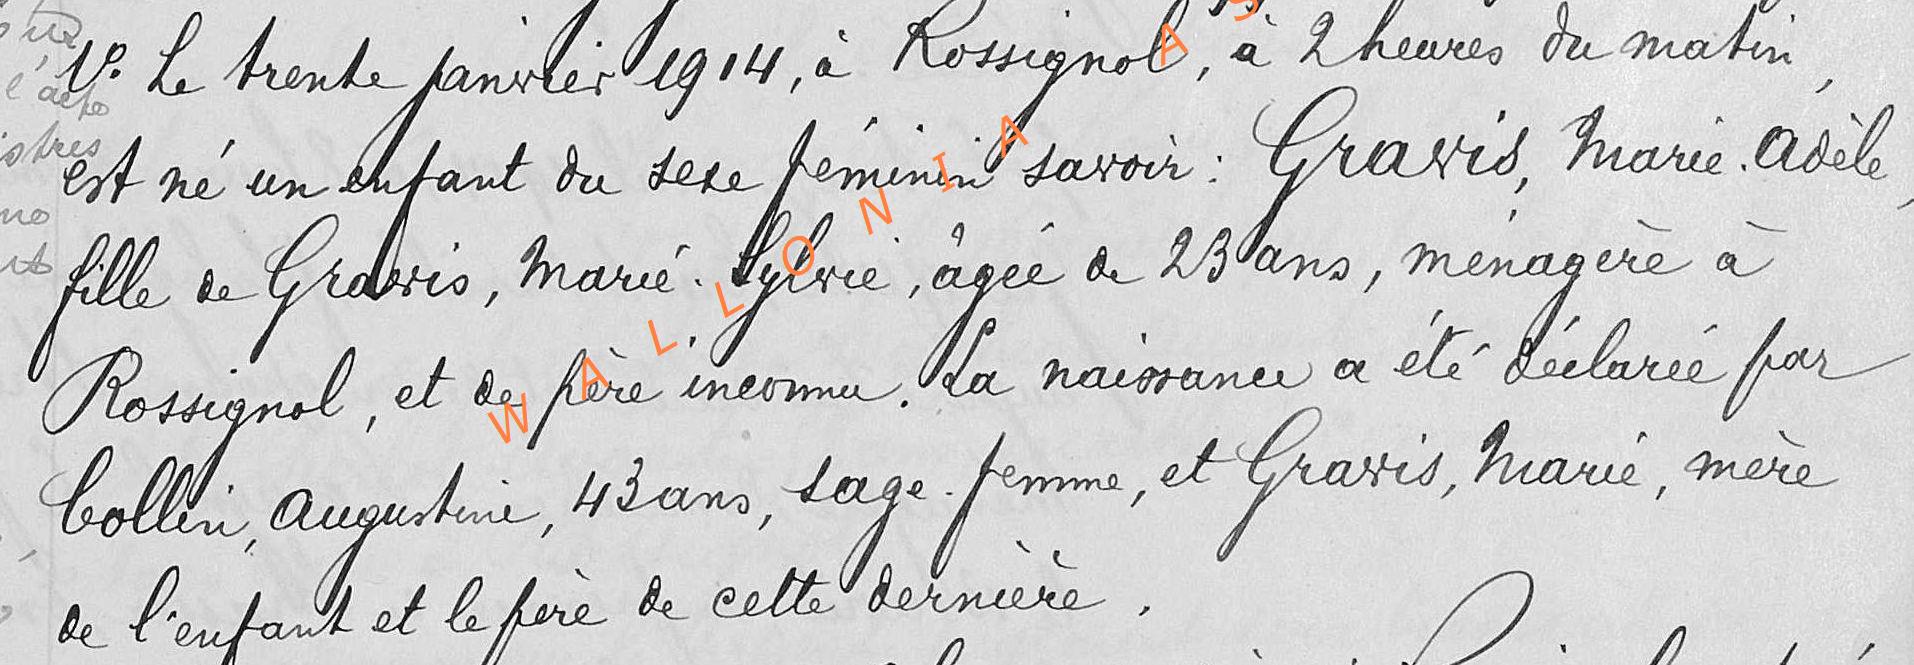 1º. Le trente janvier 1914, à Rossignol, à 2 heures du matin,
est né un enfant du sexe féminin savoir : Gravis, Marie-Adèle,
fille de Gravis, Marie-Sylvie, âgée de 23 ans, ménagère à
Rossignol, et de père inconnu. La naissance a été déclarée par
Collin, Augustine, 43 ans, sage-femme, et Gravis, Marie, mère
de l'enfant et le père de cette dernière.
l'acte
WALLONIA